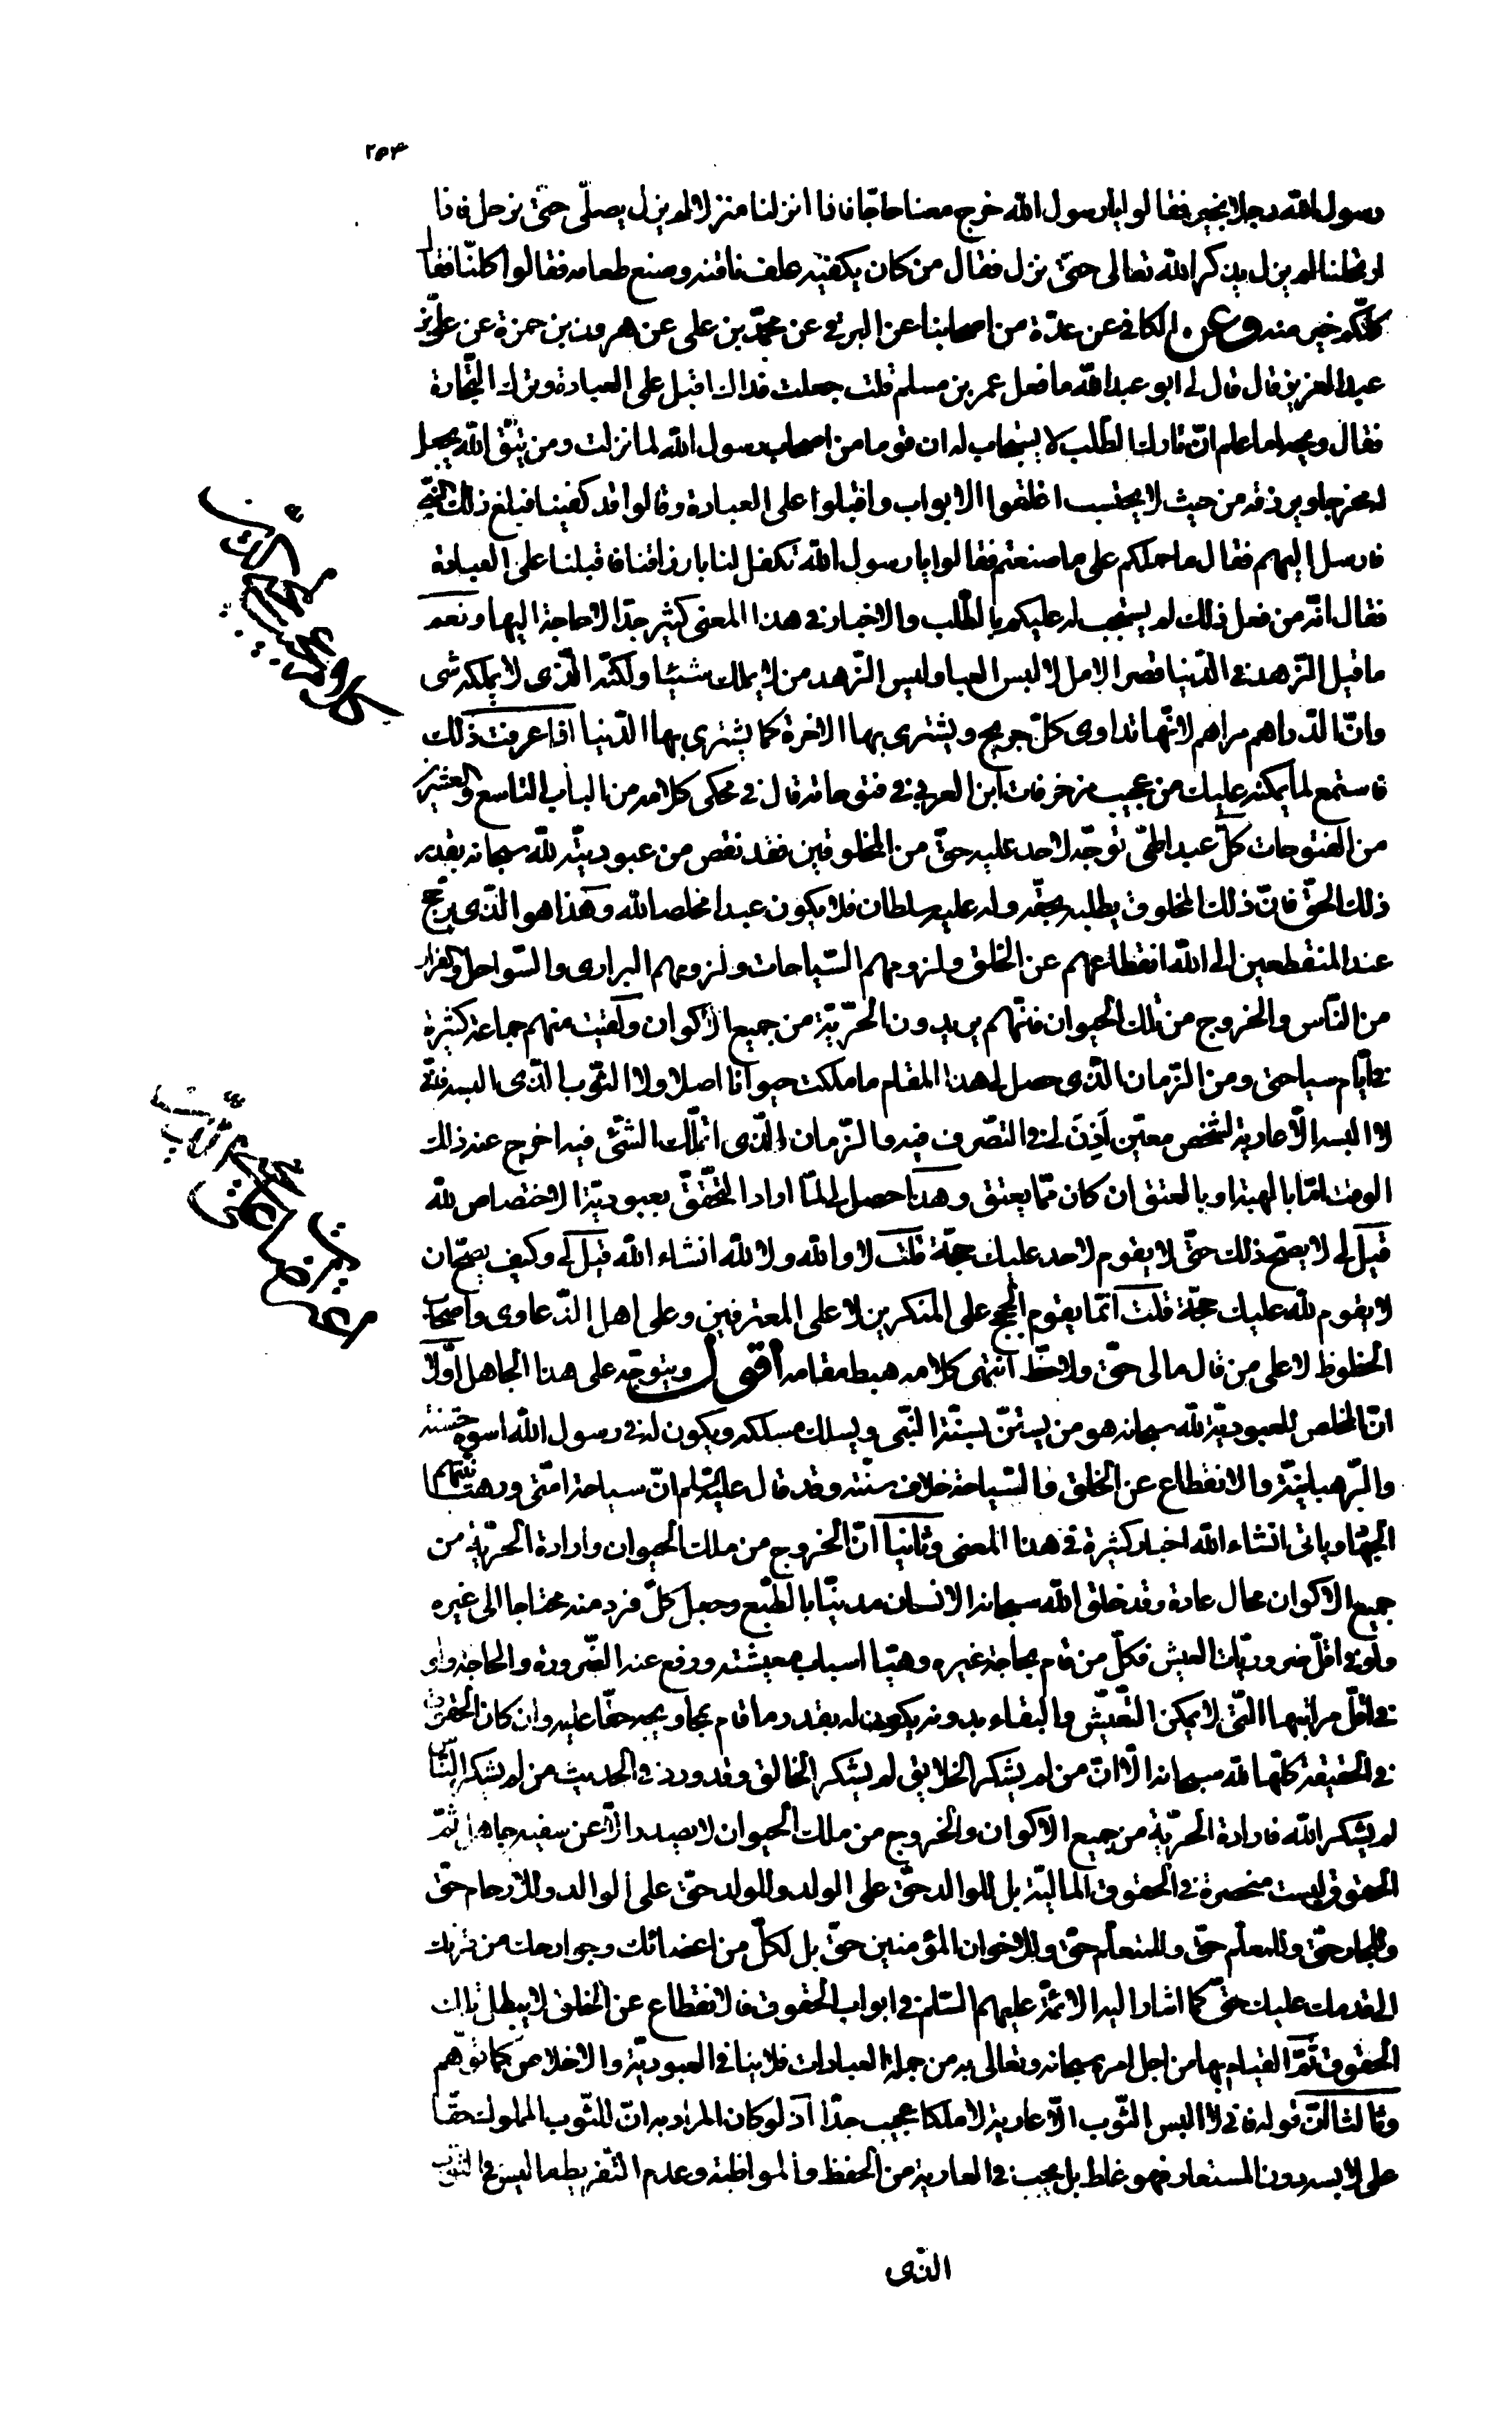 ٢٥٤
رسول الله رجلا بخير فقالوا يا رسول الله خرج معنا حاجّا فاذا نزلنا منزلا لم يزل يصلّى حتّى نرحل فاذا
ارتحلنا لم يزل يذكر الله تعالى حتّى ننزل فقال من كان يكفيه علف ناقته وصنع طعامه فقالوا كلنّا فقال
كلّكم خير منه وعن الكافي عن عدّة من اصحابنا عن البرقى عن محمّد بن على عن هرون بن حمزة عن على بن
عبد العزيز قال قال لى ابو عبد الله ما فعل عمر بن مسلم قلت جعلت فداك اقبل على العبادة وترك التّجارة
فقال ويحه اما علم انّ تارك الطّلب لا يستجاب له ان قوما من اصحاب رسول الله لما نزلت ومن يتّق الله يجعل
له مخرجا ويرزقه من حيث لا يحتسب اغلقوا الابواب واقبلوا على العبادة وقالوا قد كفينا فبلغ ذلك النبىّ
فارسل اليهم فقال ما حملكم على ما صنعتم فقالوا يا رسول الله تكفل لنا بارزاقنا فاقبلنا على العبادة
فقال انّه من فعل ذلك لم يستجب له عليكم بالطّلب والاخبار في هذا المعنى كثير جدّا لا حاجة اليها ونعم
ما قيل الزّهد في الدّنيا قصر الامل لا لبس العبا وليس الزّهد من لا يملك شيئا ولكنّه الّذى لا يملكه شى
وانّ الدّراهم مراهم لانّها تداوى كلّ جريح ويشترى بها الاخرة كما يشترى بها الدّنيا اذا عرفت ذلك
فاستمع لما يمكنه عليك من عجيب مزخرفات ابن العربي في فتوحاته قال في محكى كلامه من الباب التاسع والعشرين
من الفتوحات كلّ عبد الهىّ توجّه لاحد عليه حقّ من المخلوقين فقد نقص من عبوديّته لله سبحانه بقدر
ذلك الحقّ فانّ ذلك المخلوق يطلبه بحقّه وله عليه سلطان فلا يكون عبدا مخلصا لله وهذا هو الّذى يرجّح
عند المنقطعين الى الله انقطاعهم عن الخلق ولزومهم السّياحات ولزومهم البرارى والسّواحل والفرار
من النّاس والخروج من تلك الحيوان فانّهم يريدون الحرّيّة من جميع الاكوان ولقيت منهم جماعة كثيرة
في ايّام سياحتى ومن الزّمان الّذى حصل لى هذا المقام ما ملكت حيوانا اصلا ولا الثّوب الّذى البسه فانّى
لا البسه الّا عارية لشخص معيّن اَذِنَ لى في التصّرف فيه والزّمان الّذى اتملّك الشئى فيه اخرج عنه ذلك
الوقت امّا بالهبة او بالعتق ان كان ممّا يعتق وهذا حصل لى لمّا اراد التّحقّق بعبوديّة الاختصاص لله
قيل لى لا يصحّ ذلك حتّى لا يقوم لاحد عليك حجّة قلت لا والله ولا لله انشاء الله قيل لى وكيف يصحّ ان
لا يقوم لله عليك حجّة قلت انّما يقوم الحجج على المنكرين لا على المعترفين وعلى اهل الدّعاوى واصحاب
الحظوظ لا على من قال مالى حقّ ولا حظّ انتهى كلامه هبط مقامه اقول ويتوجّه على هذا الجاهل اوّلا
انّ المخلص للعبوديّة لله سبحانه هو من يستنّ بسنّة النّبى ويسلك مسلكه ويكون له في رسول الله اسوة حسنة
والرّهبانيّة والانقطاع عن الخلق والسّياحة خلاف سنّته وقد قال عليه السّلم انّ سياحة امّتى ورهبانيّتهم
الجهاد وياتى انشاء الله اخبار كثيرة في هذا المعنى وثانيا انّ الخروج من ملك الحيوان وارادة الحرّيّة من
جميع الاكوان محال عادة وقد خلق الله سبحانه الانسان مدنيّا بالطّبع وجعل كلّ فرد منه محتاجا الى غيره
ولو في اقلّ ضروريّات العيش فكلّ من قام بحاجة غيره وهيّا اسباب معيشته ورفع عنه الضّرورة والحاجة ولو
في اقلّ مراتبها الّتى لا يمكن التّعيّش والبقاء بدونه يكون له بقدر ما قام بحاويجه حقّا عليه وان كان الحقوق
في الحقيقة كلّها لله سبحانه الّا انّ من لم يشكر الخلايق لم يشكر الخالق وقد ورد في الحديث من لم يشكر النّاس
لم يشكر الله فارادة الحرّيّة من جميع الاكوان والخروج من ملك الحيوان لا يصدر الّا عن سفيه جاهل ثمّ
الحقوق ليست منحصرة في الحقوق الماليّة بل للوالد حقّ على الولد وللولد حقّ على الوالد وللارحام حقّ
وللجار حقّ وللمعلّم حقّ وللمتعلّم حقّ وللاخوان المؤمنين حقّ بل لكلّ من اعضائك وجوارحك من قرنك
الى قدمك عليك حقّ كما اشار اليه الائمّة عليهم السّلم في ابواب الحقوق فالانقطاع عن الخلق لا يبطل تلك
الحقوق ثمّ القيام بها من اجل امره سبحانه وتعالى به من جملة العبادات فلا ينافى العبوديّة والاخلاص كما توّهم
وثالثا انّ قوله فانى لا البس الثّوب الّا عارية لا ملكا عجيب جدّا اذ لو كان المراد به انّ للثّوب المملوك حقّا
على لابسه دون المستعار فهو غلط بل يجب في العارية من الحفظ والمواظبة وعدم التّفريط ما ليس في الثوب
الّذى